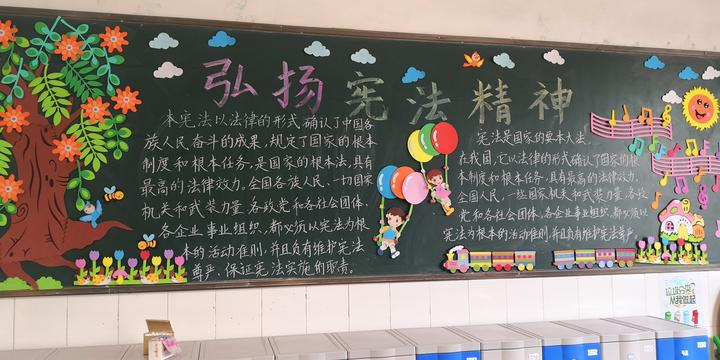 弘扬宪法精神
本宪法以法律的形式确认了中国各
族人民奋斗的成果，规定了国家的根本
制度和根本任务，是国家的根本法，具有
最高的法律效力。全国各族人民、一切国家
机关和武装力量、各政党和各社会团体、
各企业事业组织，都必须以宪法为根
本的活动准则，并且负有维护宪法
尊严、保证宪法实施的职责。
宪法是国家的基本大法，
在我国，它以法律的形式确认了国家的根
本制度和根本任务，具有最高的法律效力。
全国人民，一些国家机关和武装力量，各政
党和各社会团体，各企业事业组织，都必须以
宪法为根本的活动准则，并且负有维护宪法尊严
垃圾分类
从我做起